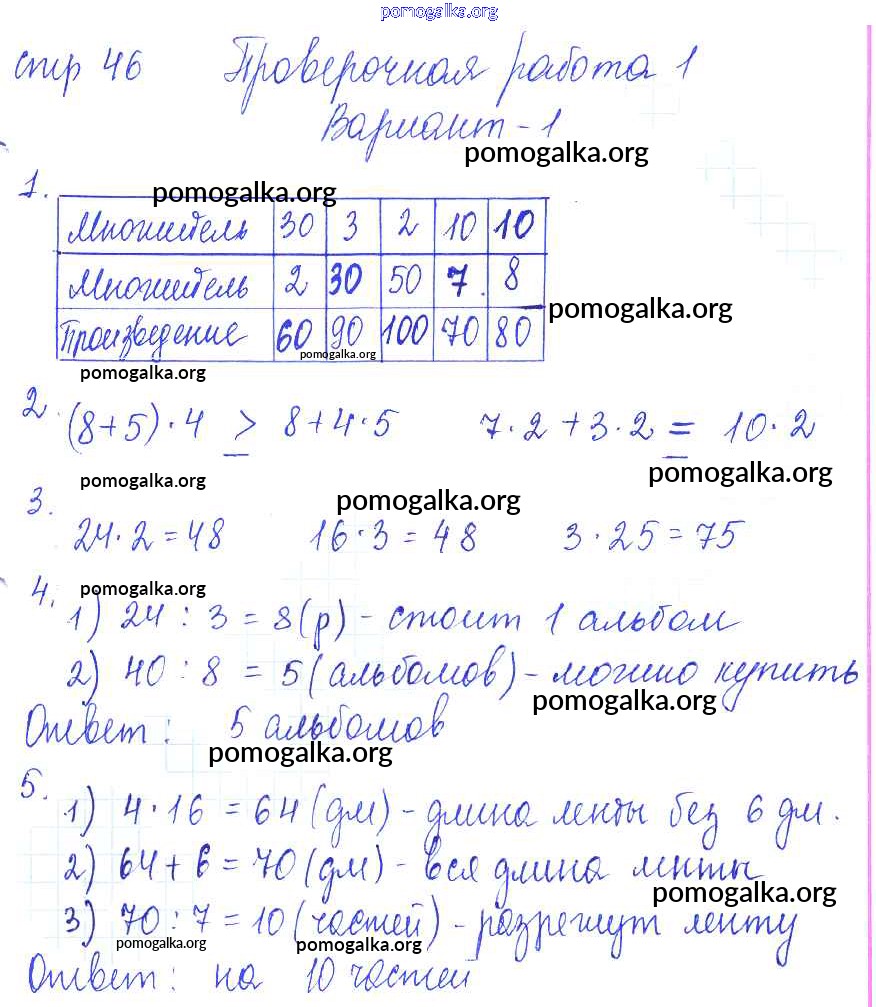 pomogalka.org
стр 46 Проверочная работа 1
Вариант - 1
pomogalka.org
1. pomogalka.org
Множитель 30 3 2 10 10
Множитель 2 30 50 7 8
pomogalka.org
Произведение 60 90 100 70 80
pomogalka.org
pomogalka.org
2. (8+5)·4 > 8+4·5 7·2+3·2 = 10·2
pomogalka.org
pomogalka.org
3. pomogalka.org
24·2=48 16·3=48 3·25=75
4. pomogalka.org
1) 24 : 3 = 8(р) - стоит 1 альбом
2) 40 : 8 = 5(альбомов) - можно купить
pomogalka.org
Ответ: 5 альбомов
pomogalka.org
5.
1) 4·16 = 64(дм) - длина ленты без 6 дм.
2) 64+6=70(дм) - вся длина ленты
pomogalka.org
3) 70:7=10(частей) - разрежут ленту
pomogalka.org pomogalka.org
Ответ: на 10 частей